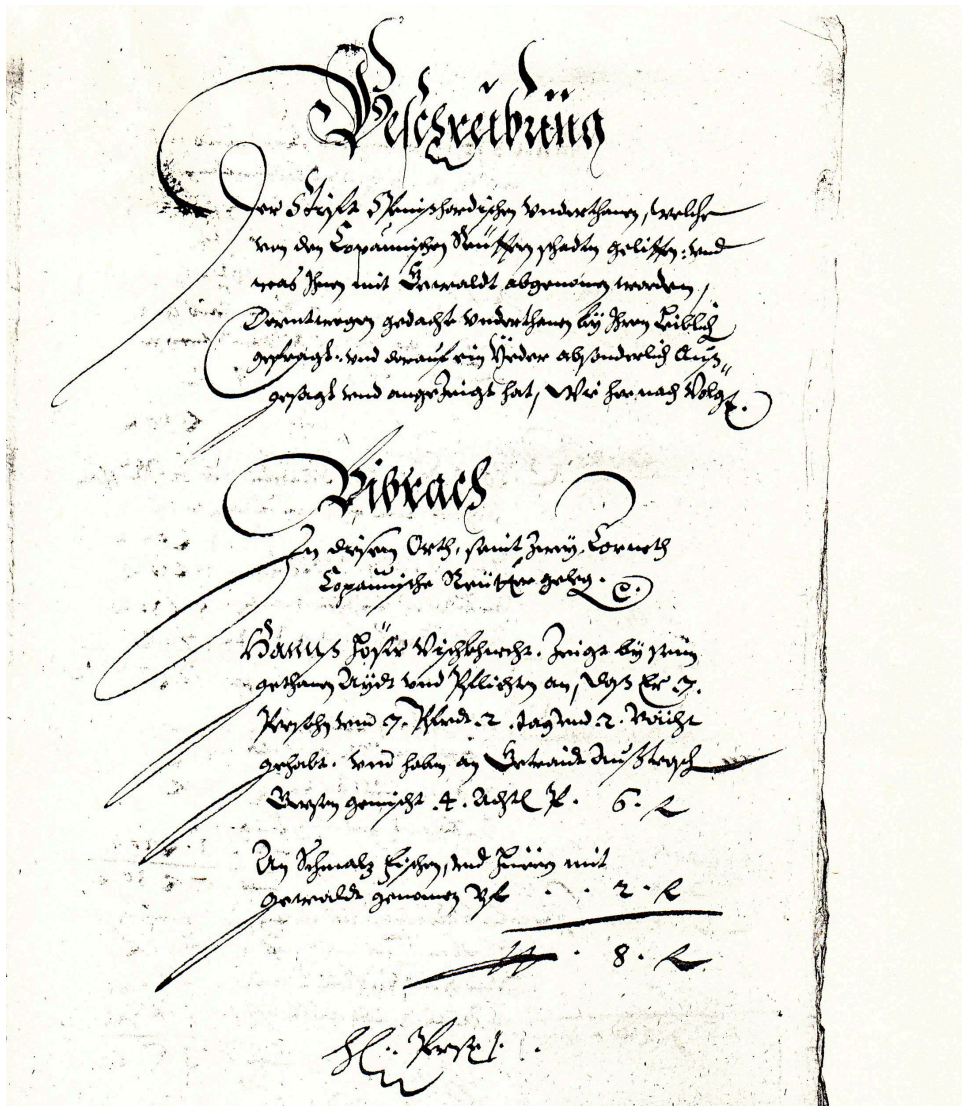 Beschreibüng
Der Stifft Speinshardischen Vnderthanen, welche
von den Copaunischen Reüttern schaden gelitten: vnd
was Ihnen mit Gewaldt abgenomen worden,
Derentwegen gedachte Vnderthanen bey Ihren Leiblich
gefragt: vnd darauf ein Yeder absonderlich Auß„
gesagt vnd angezeigt hat, Wie hernach Volgt.
Bibrach
In disem Orth, seint Zwey Corneth
Copaunische Reütter geleg. e.
Hannß Vischknecht. Zeigt bey sein
gethanen Aydt vnd Pflichten an, daß Er 7.
Persohn vnd 7. Pferdt 2. tag vnd 2. Nächt
gehabt. vnd haben an Getraidt Außtrosch
Gersten gemischt .4. Achtl P. 6. f
An Schmalz Fischen, vnd mit
getwaldt genomen P. . . 2. f
. 8. f